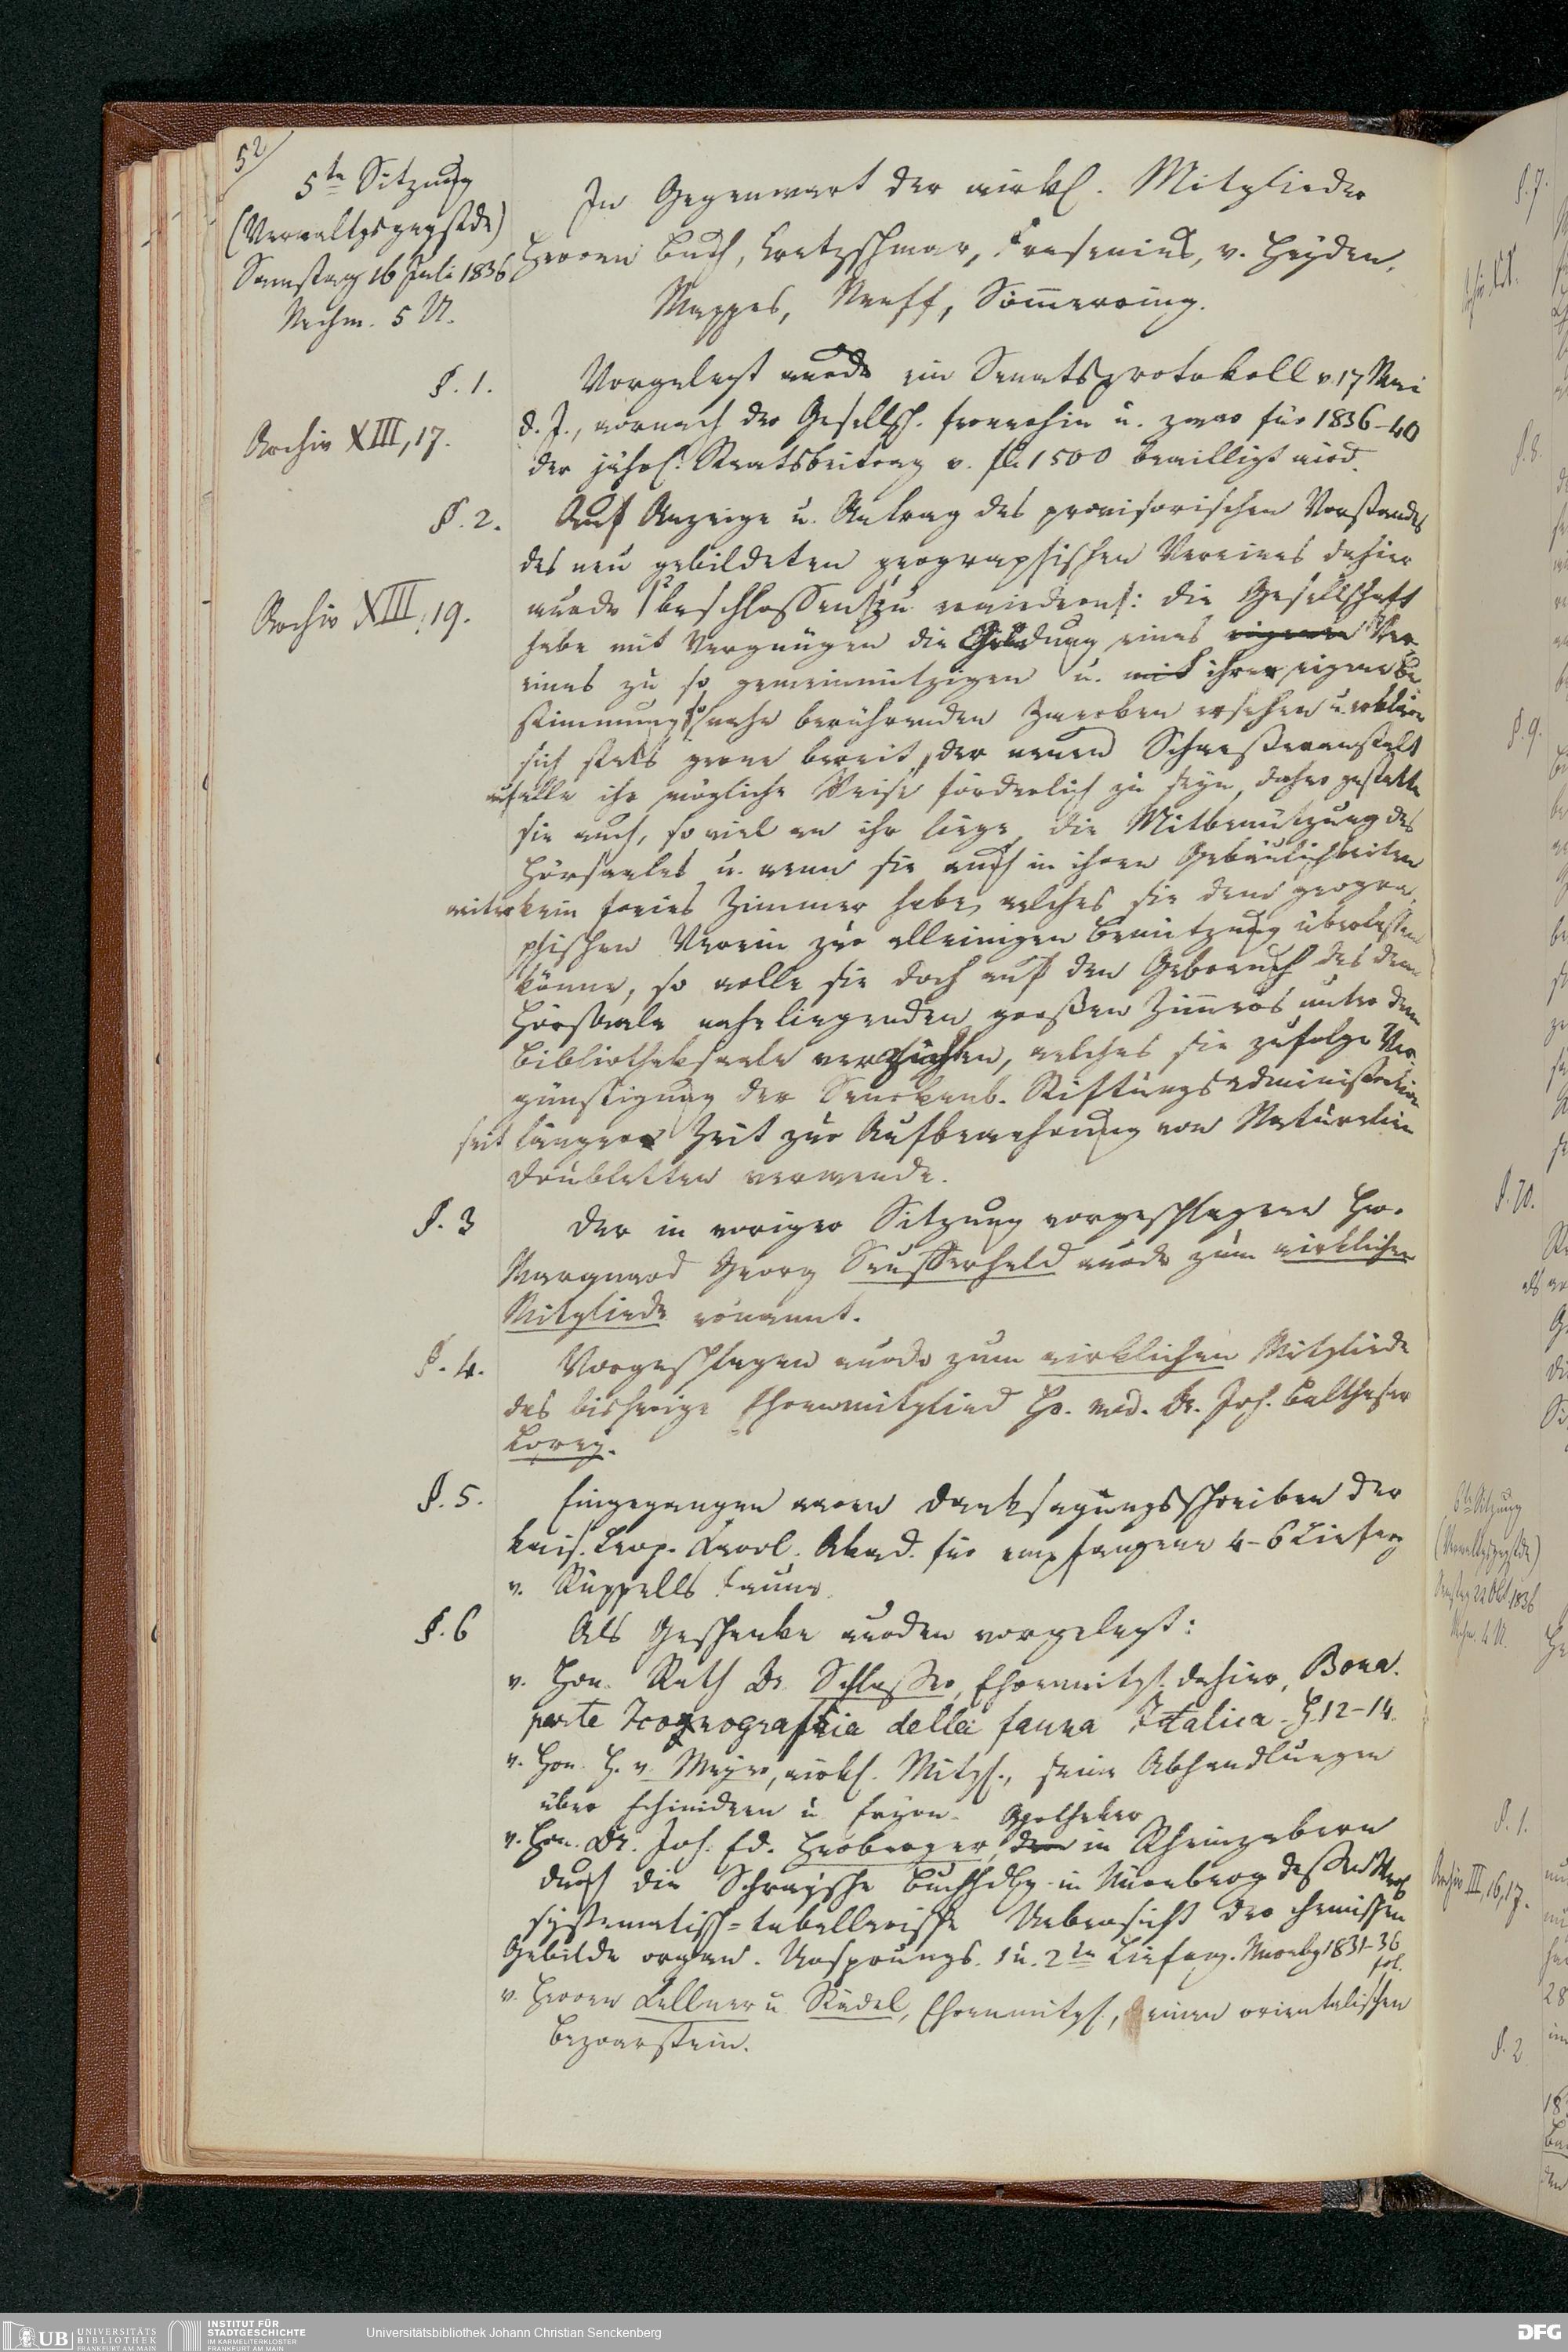 52
5te Sitzung
(Verwaltgsgegstde)
Samstag 16 Juli 1836
Nachm. 5 U.
In Gegenwart der wirkl. Mitglieder
Herren Buch, Cretzschmar, Fresenius, v. Heyden,
Mappes, Neeff, Sömmerring.
§. 1.
Archiv XIII, 17.
Vorgelegt wurde ein Senatsprotokoll v. 17 Mai
d. J., wornach der Gesellsch. fernerhin u. zwar für 1836–40
der jährl. Staatsbeitrag v. fl. 1500 bewilligt wird.
§. 2.
Archiv XIII, 19.
Auf Anzeige u. Antrag des provisorischen Vorstandes
des neu gebildeten geographischen Vereines dahier
wurde beschlossen zu erwiedern: die Gesellschaft
habe mit Vergnügen die Gründung eines eigenen Ver-
eines zu so gemeinnützigen u. mit ihrer eigenen Be
stimmung so nahe berührenden Zwecken ersehen u. erkläre
sich stets gerne bereit, der neuen Schwesteranstalt
auf alle ihr mögliche Weise förderlich zu seyn, daher gestatte
sie auch, so viel an ihr liege, die Mitbenützung des
Hörsaales u. wenn sie auch in ihren Gebäulichkeiten
weiter kein freies Zimmer habe, welches sie dem geogra-
phischen Verein zur alleinigen Benützung überlassen
könne, so wolle sie doch auf den Gebrauch des dem
Hörsaale nahe liegenden großen Zimmers unter dem
Bibliotheksaale verzichten, welches sie zufolge Ver-
günstigung der Senckenb. Stiftungsadministration
seit längerer Zeit zur Aufbewahrung von Naturalien
doubletten verwende.
§. 3
Der in voriger Sitzung vorgeschlagene Hr.
Marquard Georg Seufferheld wurde zum wirklichen
Mitgliede ernannt.
§. 4.
Vorgeschlagen wurde zum wirklichen Mitgliede
das bisherige Ehrenmitglied Hr. med. Dr. Joh. Balthasar
Lorey.
§. 5.
Eingegangen waren Danksagungsschreiben der
Kais. Leop. Karol. Akad. für empfangene 4–6 Liefrg
v. Rüppells Fauna.
§. 6
Als Geschenke wurden vorgelegt:
v. Hrn. Rath Dr. Schlosser, Ehrenmitgl. dahier, Bona.
parte Iconografia della fauna Italica. H. 12–14.
v. Hrn. H. v. Meyer, wirkl. Mitgl., seine Abhandlungen
über Echiniden u. Eryon.
v. Hrn. Dr. Joh. Ed. Herberger, Apotheker in Rheinzabern
durch die Schragsche Buchhdlg in Nürnberg dessen Werk
systematisch-tabellarische Uebersicht der chemischen
Gebilde organ. Ursprungs. 1 u. 2te Liefrg. Nürnbg 1831–36
fol.
v. Herren Kellner u. Riedel, Ehrenmitgl., einen orientalischen
Bezoarstein.
§. 7.
§. 8.
§. 9.
§. 10.
6te Sitzung
(Verwaltgsgegstde)
Samstag 22 Okt. 1836
Nachm. 4 U.
§. 1.
Archiv III, 16, 17.
§. 2
UB UNIVERSITÄTS BIBLIOTHEK FRANKFURT AM MAIN
INSTITUT FÜR STADTGESCHICHTE IM KARMELITERKLOSTER FRANKFURT AM MAIN
Universitätsbibliothek Johann Christian Senckenberg
DFG